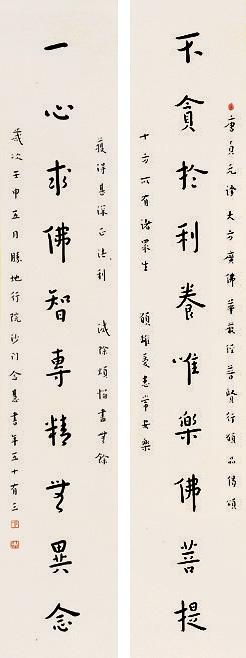 唐貞元譯大方廣佛華嚴經普賢行願品偈頌
不貪於利養唯樂佛菩提
十方所有諸眾生 願離憂患常安樂
獲得甚深正法利 滅除煩惱盡無餘
一心求佛智專精無異念
歲次壬申五月勝地行院沙門含慧書年五十有三